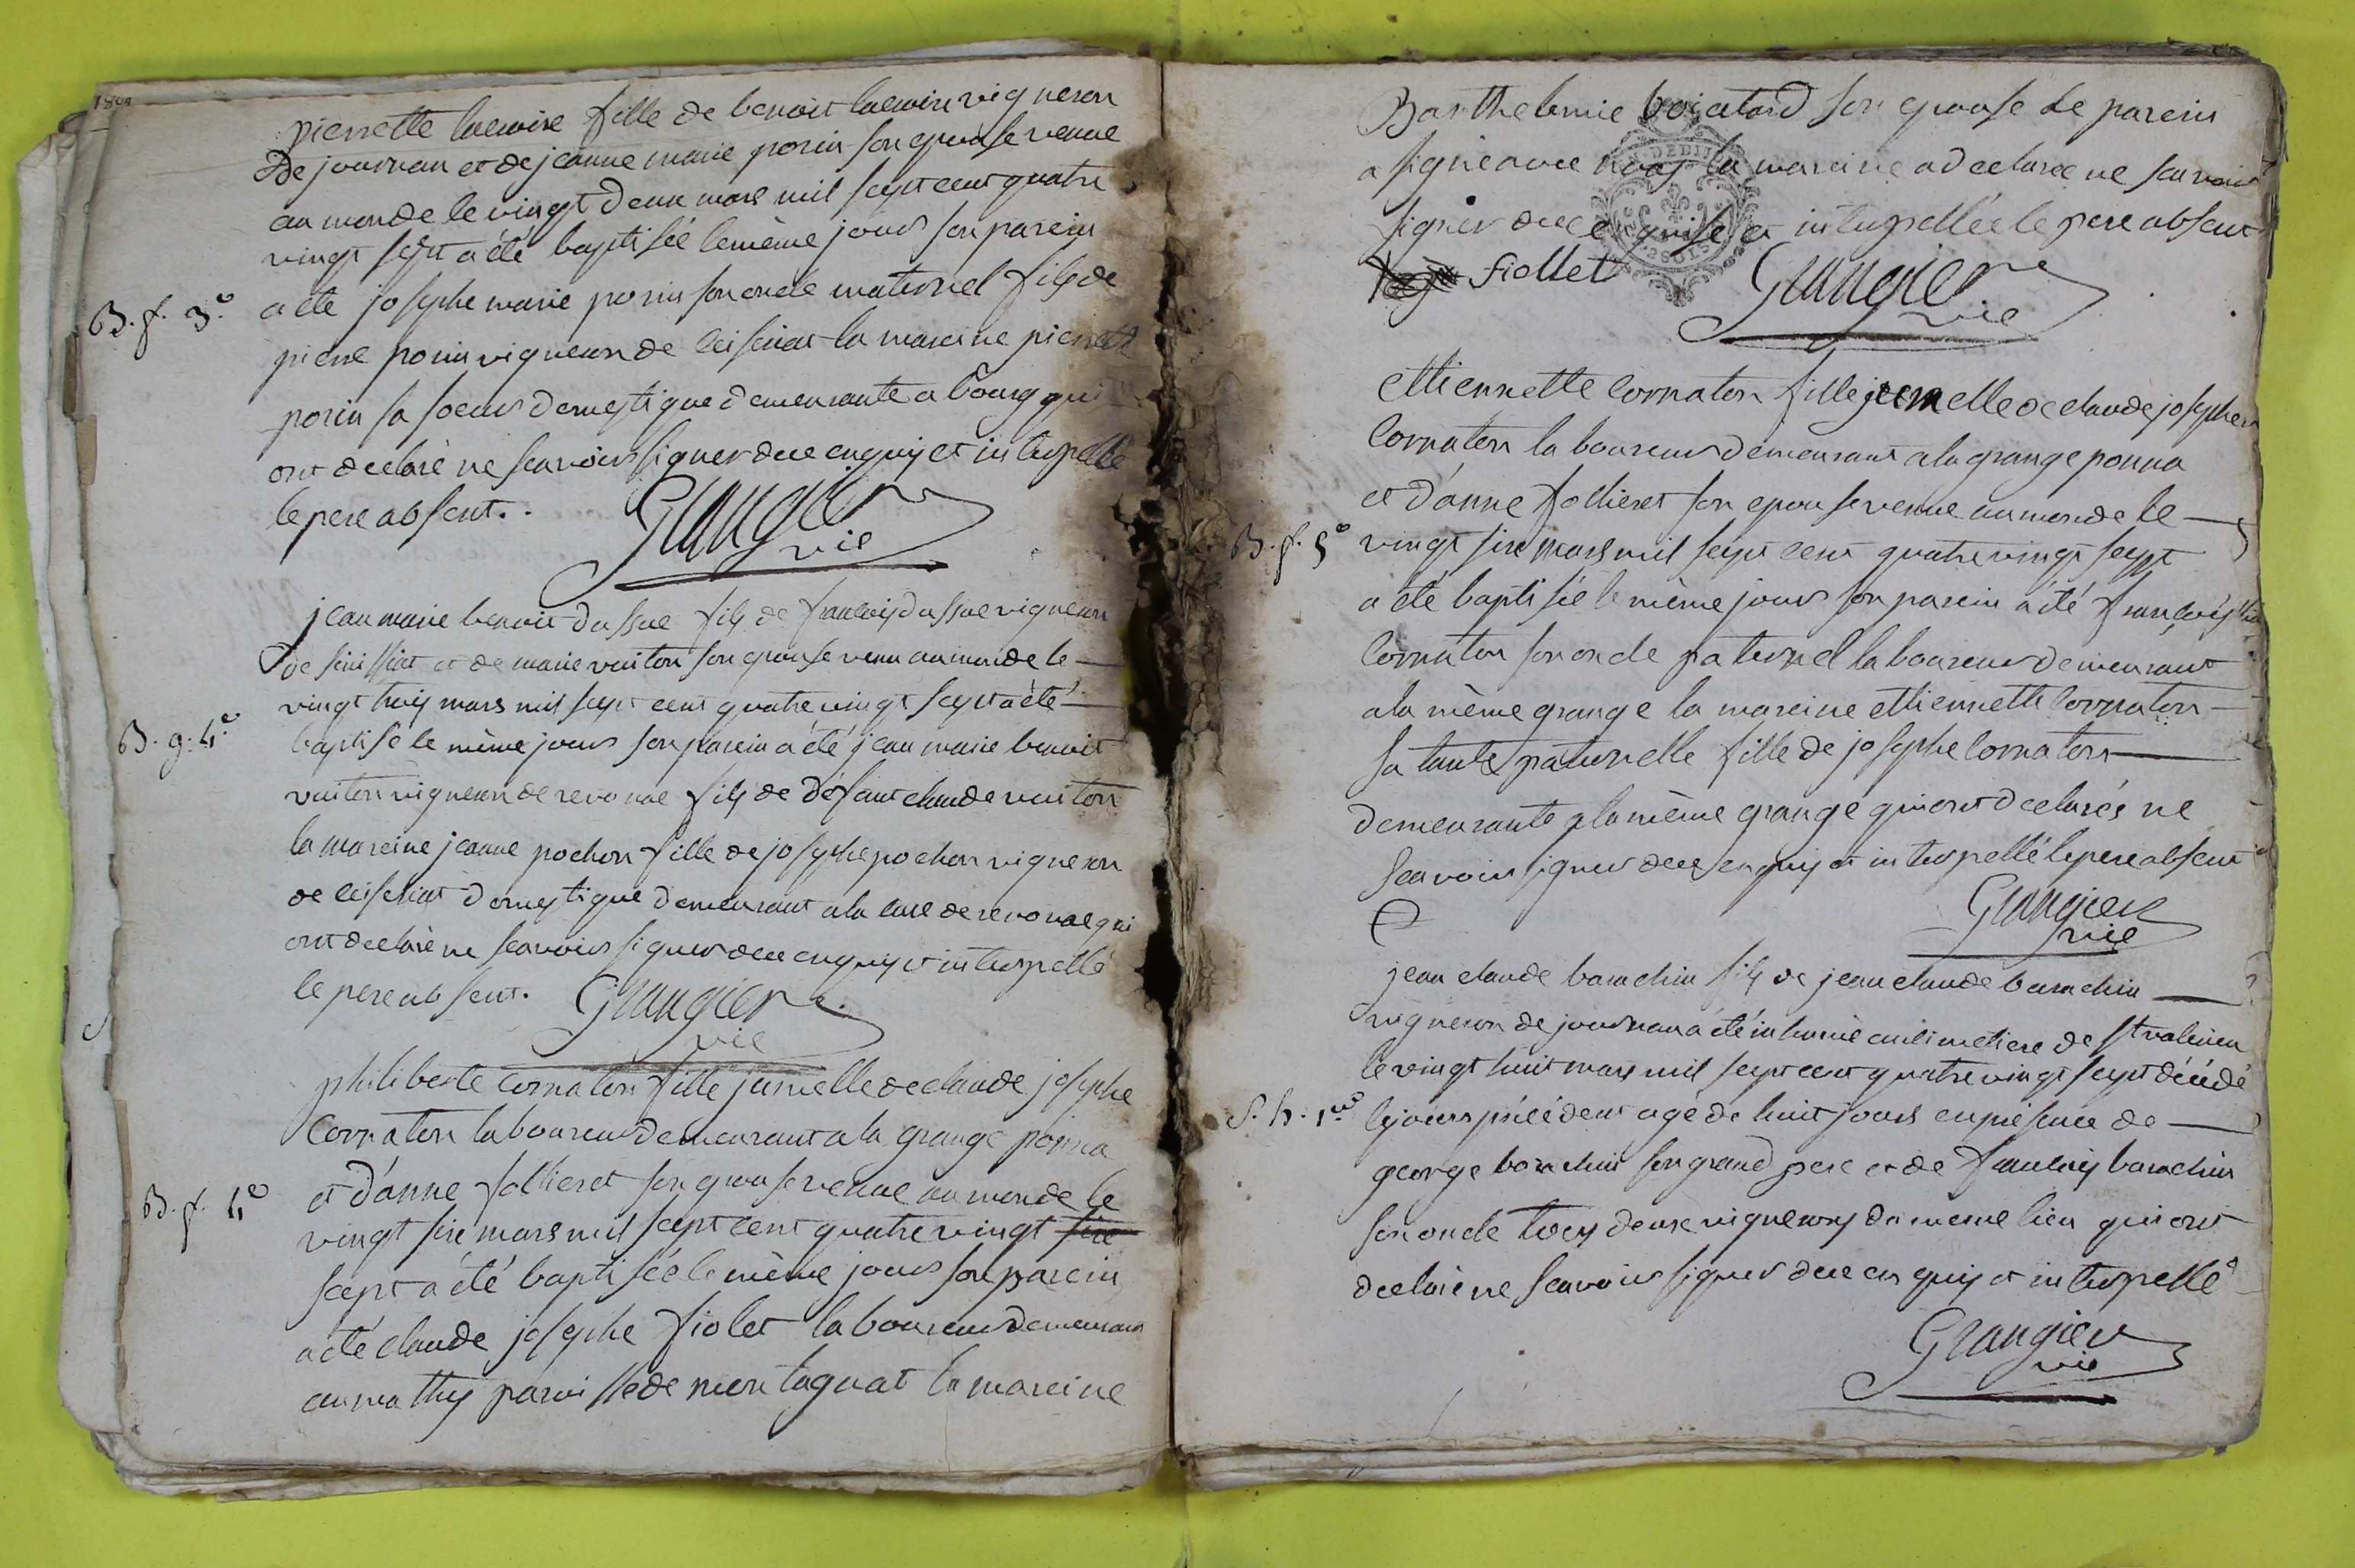 pierrette lacroix fille de benoit lacroix vigneron
de journan et de jeanne marie porin son epouse venue
au monde le vingt deux mars mil sept cent quatre
vingt sept a été baptisée le même jour son parein
B. f. 3e a eté josephe marie porin son oncle maternel fils de
pierre porin vigneron de ceisériat la mareine pierrette
porin sa soeur domestique demeurante a bourg qui
ont declaré ne scavoir signer de ce enquis et interpellé
le pere absent.
Grangier
vic
jean marie benoit dassue fils de francois dassue vigneron
de et de marie vuiton son epouse venu au monde le
vingt trois mars mil sept cent quatre vingt sept a été
B. g. 4e baptisé le même jour son parein a été jean marie benoit
vuiton vigneron de revonae fils de défaut claude vuiton
la mareine jeanne pochon fille de josephe pochon vigneron
de domestique demeurant a la cure de revonae qui
ont declaré ne scavoir signer de ce enquis et interpellé
le pere absent. Grangier
vic
philiberte cornaton fille jumelle de claude josephe
Cornaton laboureur demeurant a la grange ponna
B. f. 4e et d'anne follieret son epouse venue au monde le
vingt six mars mil sept cent quatre vingt six
sept a été baptisée le même jour son parein
a été claude josephe fiolet laboureur demeurant
au mathy paroisse de montagnat la mareine
Barthelemie son epouse Le parein
a signé avec nous la mareine a declaree ne scavoir
signer de ce enquise et interpellée le pere absent
fiollet Grangier
vic
ettiennette cornaton fille jumelle de claude josephe
Cornaton laboureur demeurant a la grange ponna
et d'anne follieret son epouse venue au monde le
B. f. 5e vingt six mars mil sept cent quatre vingt sept
a été baptisée le même jour son parein a été francois
Cornaton son oncle paternel laboureur demeurant
a la même grange la mareine ettiennette Cornaton
sa tante paternelle fille de josephe Cornaton
demeurante a la même grange qui ont declarés ne
scavoir signer de ce enquis et interpellé le pere absent
Grangier
vic
jean claude barachin fils de jean claude barachin
vigneron de journan a été inhumé au cimetiere de st valerien
le vingt huit mars mil sept cent quatre vingt sept décédé
S. h. 1er le jour précédent agé de huit jours en présence de
george barachin son grand pere et de francois barachin
son oncle tous deux vignerons du meme lieu qui ont
declaré ne scavoir signer de ce enquis et interpellé
Grangier
vic